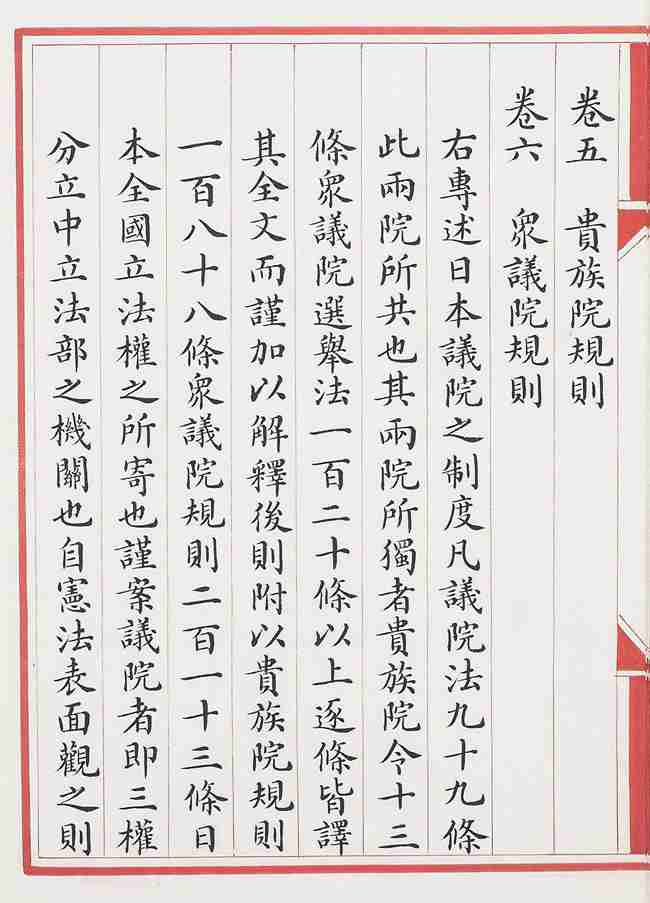 卷五　貴族院規則
卷六　衆議院規則
右專述日本議院之制度凡議院法九十九條
此兩院所共也其兩院所獨者貴族院令十三
條衆議院選舉法一百二十條以上逐條皆譯
其全文而謹加以解釋後則附以貴族院規則
一百八十八條衆議院規則二百一十三條日
本全國立法權之所寄也謹案議院者即三權
分立中立法部之機關也自憲法表面觀之則